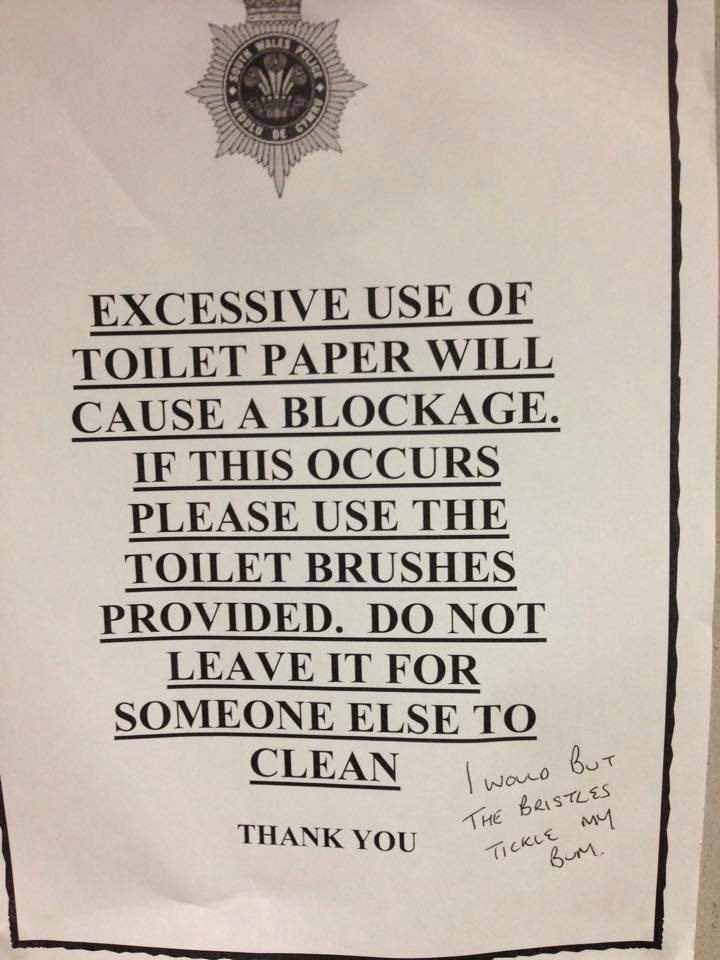 SOUTH WALES POLICE
HEDDLU DE CYMRU
EXCESSIVE USE OF
TOILET PAPER WILL
CAUSE A BLOCKAGE.
IF THIS OCCURS
PLEASE USE THE
TOILET BRUSHES
PROVIDED. DO NOT
LEAVE IT FOR
SOMEONE ELSE TO
CLEAN
THANK YOU
I WOULD BUT
THE BRISTLES
TICKLE MY
BUM.